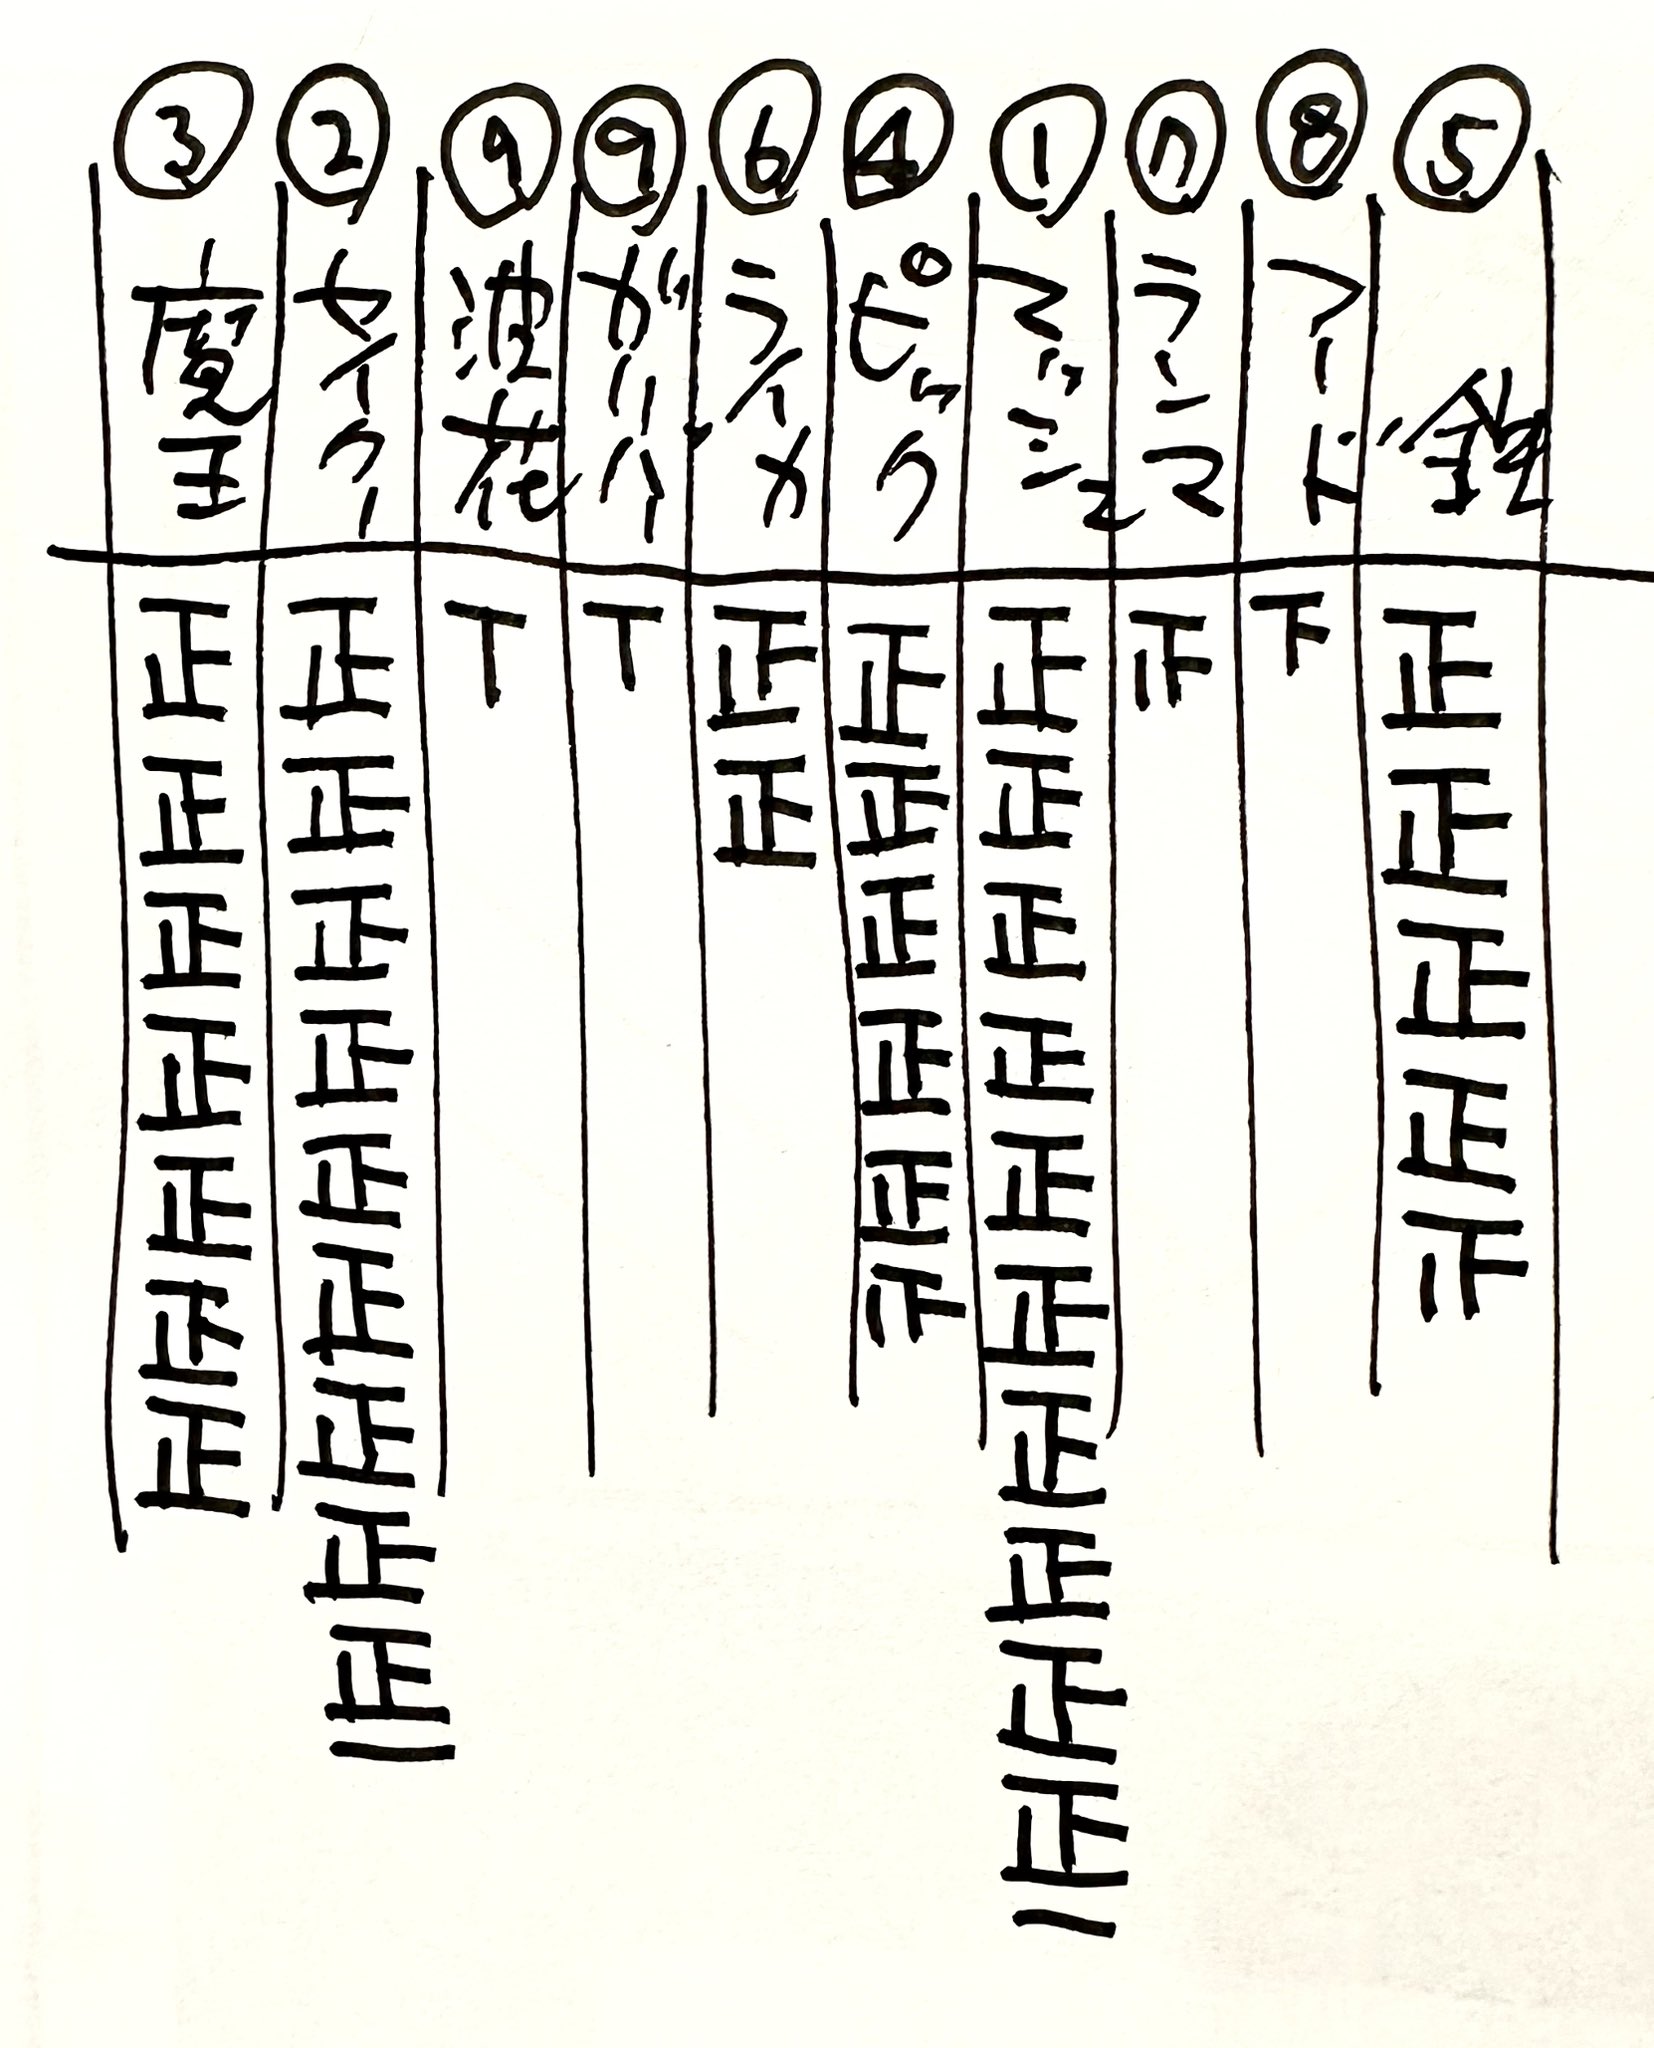 ③ ② ⑨ ⑨ ⑥ ④ ① ⑦ ⑧ ⑤
王 セイクー 波花 ガリバ ライカ ピック マッシュ ランマ アード
正 正 T T 正 正 正 止 下 正
正 正 正 正 正 正
正 正 正 正 正
正 正 正 正 正
正 正 正 正
正 正 正
正 正 正
正 正
正 正
一 正
一